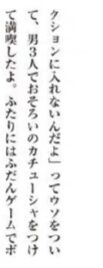 クションに入れないんだよ」ってウソをつい
て、男3人でおそろいのカチューシャをつけ
て満喫したよ。ふたりにはふだんゲームでボ